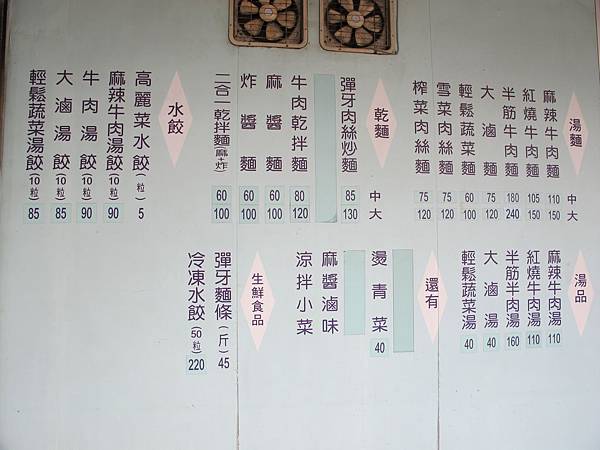 湯麵
中
大
麻辣牛肉麵 110 150
紅燒牛肉麵 105 150
半筋牛肉麵 180 240
大滷麵 75 120
輕鬆蔬菜麵 60 100
雪菜肉絲麵 75 120
榨菜肉絲麵 75 120
乾麵
中
大
彈牙肉絲炒麵 85 130
牛肉乾拌麵 80 120
麻醬麵 60 100
炸醬麵 60 100
二合一乾拌麵(麻+炸) 60 100
水餃
高麗菜水餃(粒) 5
麻辣牛肉湯餃(10粒) 90
牛肉湯餃(10粒) 90
大滷湯餃(10粒) 85
輕鬆蔬菜湯餃(10粒) 85
湯品
麻辣牛肉湯 110
紅燒牛肉湯 110
半筋半肉湯 160
大滷湯 40
輕鬆蔬菜湯 40
還有
燙青菜 40
麻醬滷味
涼拌小菜
生鮮食品
彈牙麵條(斤) 45
冷凍水餃(50粒) 220